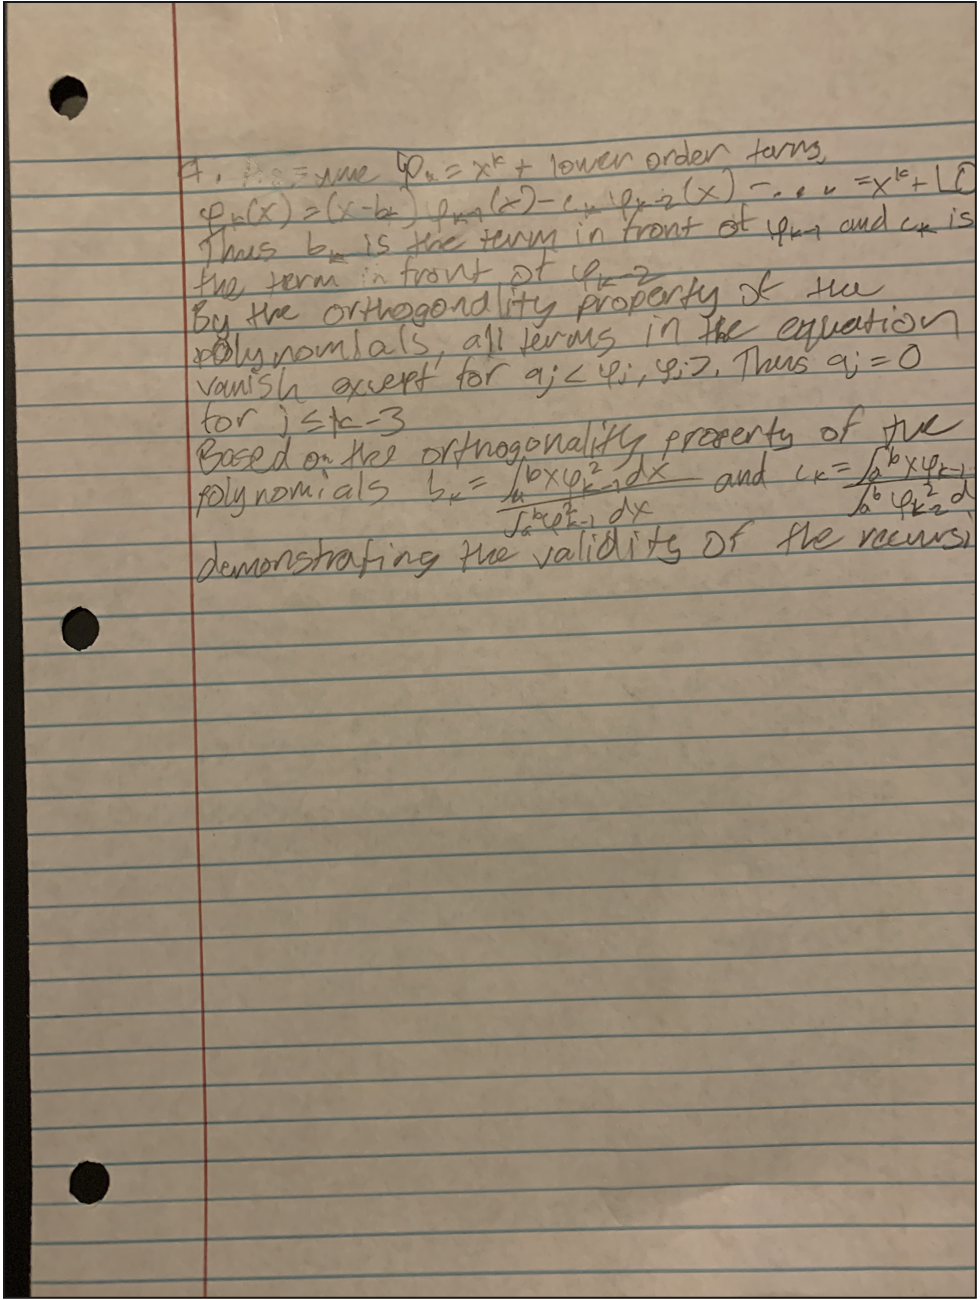 7. φₖ = xᵏ + lower order terms,
φₖ(x) = (x-bₖ) φₖ₋₁(x) - cₖ φₖ₋₂(x) - ... = xᵏ + LO
Thus bₖ is the term in front of φₖ₋₁ and cₖ is
the term in front of φₖ₋₂
By the orthogonality property of the
polynomials, all terms in the equation
vanish except for aⱼ<φⱼ, φⱼ>. Thus aⱼ = 0
for j ≤ k-3
Based on the orthogonality property of the
polynomials bₖ = ∫ₐᵇ xφ²ₖ₋₁ dx / ∫ₐᵇ φ²ₖ₋₁ dx and cₖ = ∫ₐᵇ xφₖ₋₁ / ∫ₐᵇ φ²ₖ₋₂ d
demonstrating the validity of the recursi